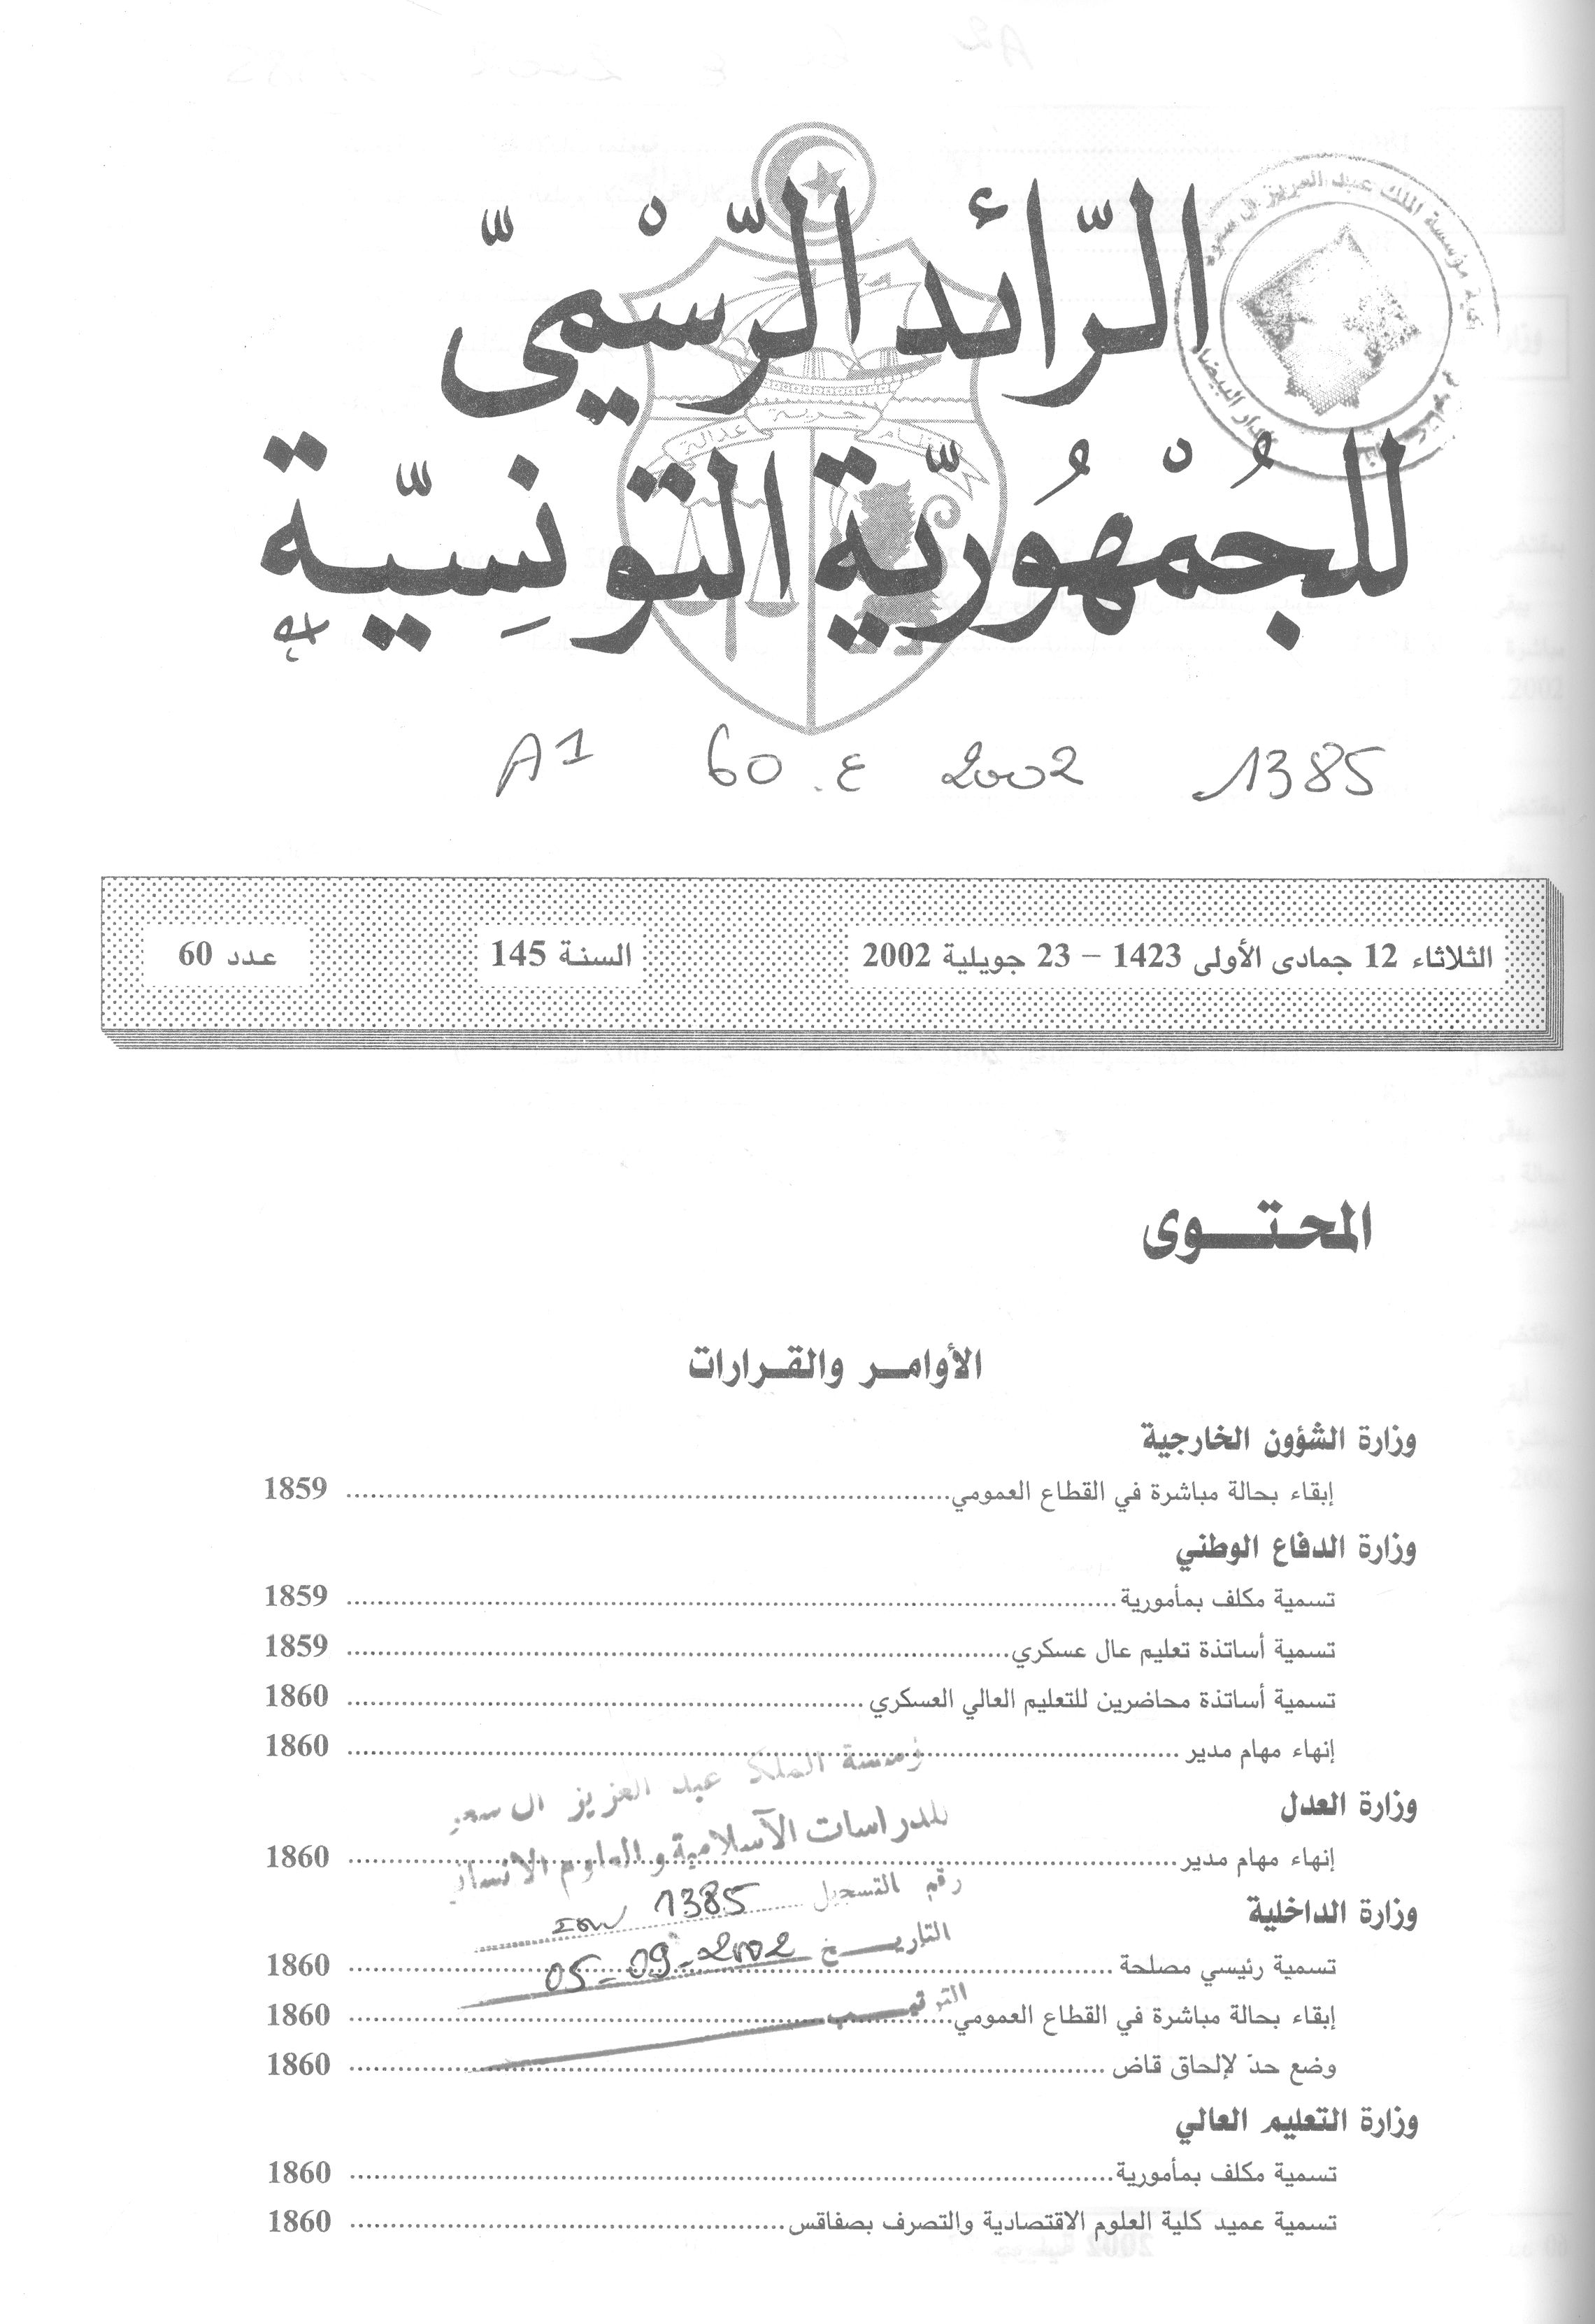 الرّائد الرّسْميّ
للجُمْهُوريّة التّونِسيّة
نظام حرية عدالة
A1 60 ع. 2002 1385
الثلاثاء 12 جمادى الأولى 1423 – 23 جويلية 2002 السنة 145 عدد 60
المحتوى
الأوامر والقرارات
وزارة الشؤون الخارجية
إبقاء بحالة مباشرة في القطاع العمومي 1859
وزارة الدفاع الوطني
تسمية مكلف بمأمورية 1859
تسمية أساتذة تعليم عال عسكري 1859
تسمية أساتذة محاضرين للتعليم العالي العسكري 1860
إنهاء مهام مدير 1860
وزارة العدل
إنهاء مهام مدير 1860
وزارة الداخلية
تسمية رئيسي مصلحة 1860
إبقاء بحالة مباشرة في القطاع العمومي 1860
وضع حدّ لإلحاق قاض 1860
وزارة التعليم العالي
تسمية مكلف بمأمورية 1860
تسمية عميد كلية العلوم الاقتصادية والتصرف بصفاقس 1860
مؤسسة الملك عبد العزيز آل سعود
للدراسات الآسلامية والعلوم الانسانية
رقم التسجيل 1385
التاريخ 05-09-2002
الترتيب